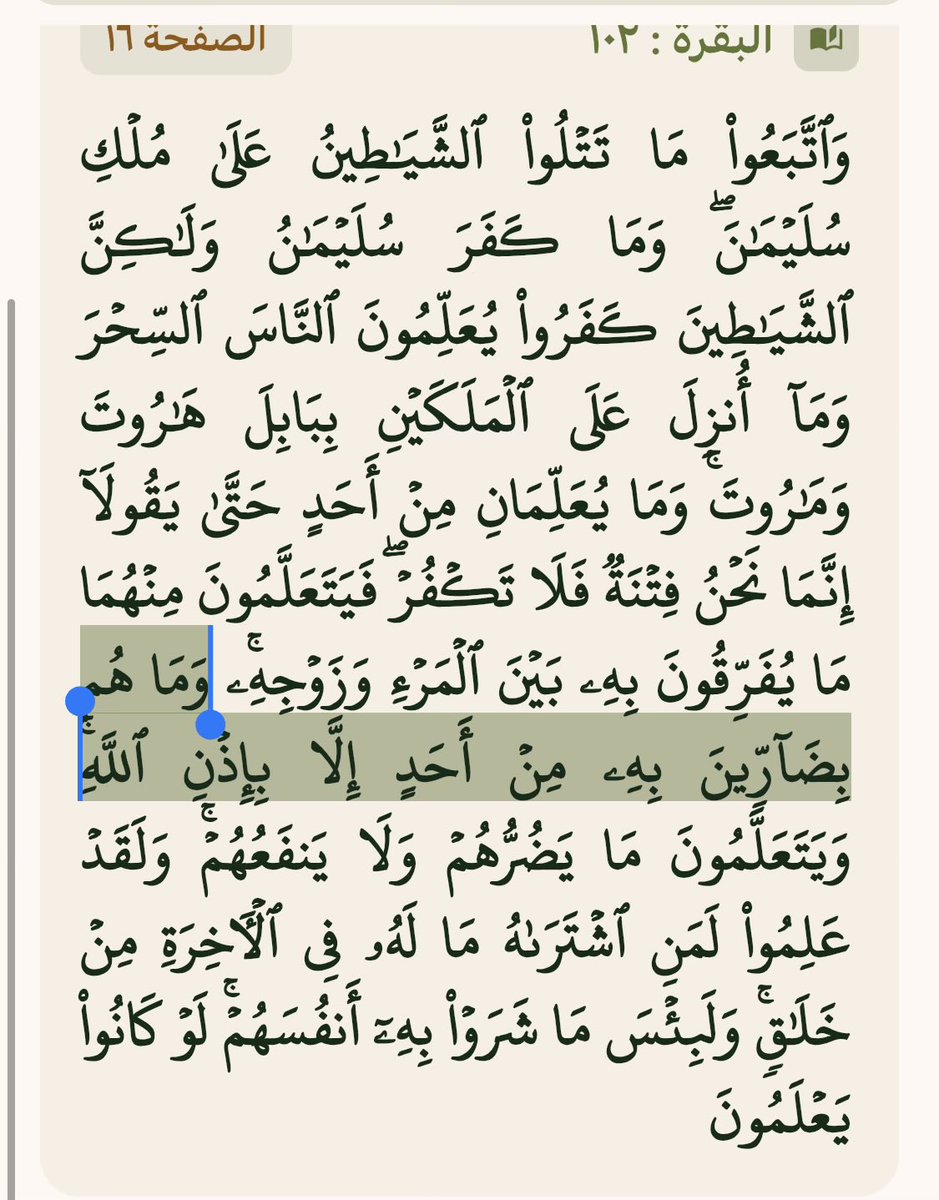 البقرة : ١٠٢
الصفحة ١٦
وَٱتَّبَعُوا۟ مَا تَتْلُوا۟ ٱلشَّيَـٰطِينُ عَلَىٰ مُلْكِ
سُلَيْمَـٰنَ ۖ وَمَا كَفَرَ سُلَيْمَـٰنُ وَلَـٰكِنَّ
ٱلشَّيَـٰطِينَ كَفَرُوا۟ يُعَلِّمُونَ ٱلنَّاسَ ٱلسِّحْرَ
وَمَآ أُنزِلَ عَلَى ٱلْمَلَكَيْنِ بِبَابِلَ هَـٰرُوتَ
وَمَـٰرُوتَ ۚ وَمَا يُعَلِّمَانِ مِنْ أَحَدٍ حَتَّىٰ يَقُولَآ
إِنَّمَا نَحْنُ فِتْنَةٌ فَلَا تَكْفُرْ ۖ فَيَتَعَلَّمُونَ مِنْهُمَا
مَا يُفَرِّقُونَ بِهِۦ بَيْنَ ٱلْمَرْءِ وَزَوْجِهِۦ ۚ وَمَا هُم
بِضَآرِّينَ بِهِۦ مِنْ أَحَدٍ إِلَّا بِإِذْنِ ٱللَّهِ ۚ
وَيَتَعَلَّمُونَ مَا يَضُرُّهُمْ وَلَا يَنفَعُهُمْ ۚ وَلَقَدْ
عَلِمُوا۟ لَمَنِ ٱشْتَرَىٰهُ مَا لَهُۥ فِى ٱلْـَٔاخِرَةِ مِنْ
خَلَـٰقٍ ۚ وَلَبِئْسَ مَا شَرَوْا۟ بِهِۦٓ أَنفُسَهُمْ ۚ لَوْ كَانُوا۟
يَعْلَمُونَ